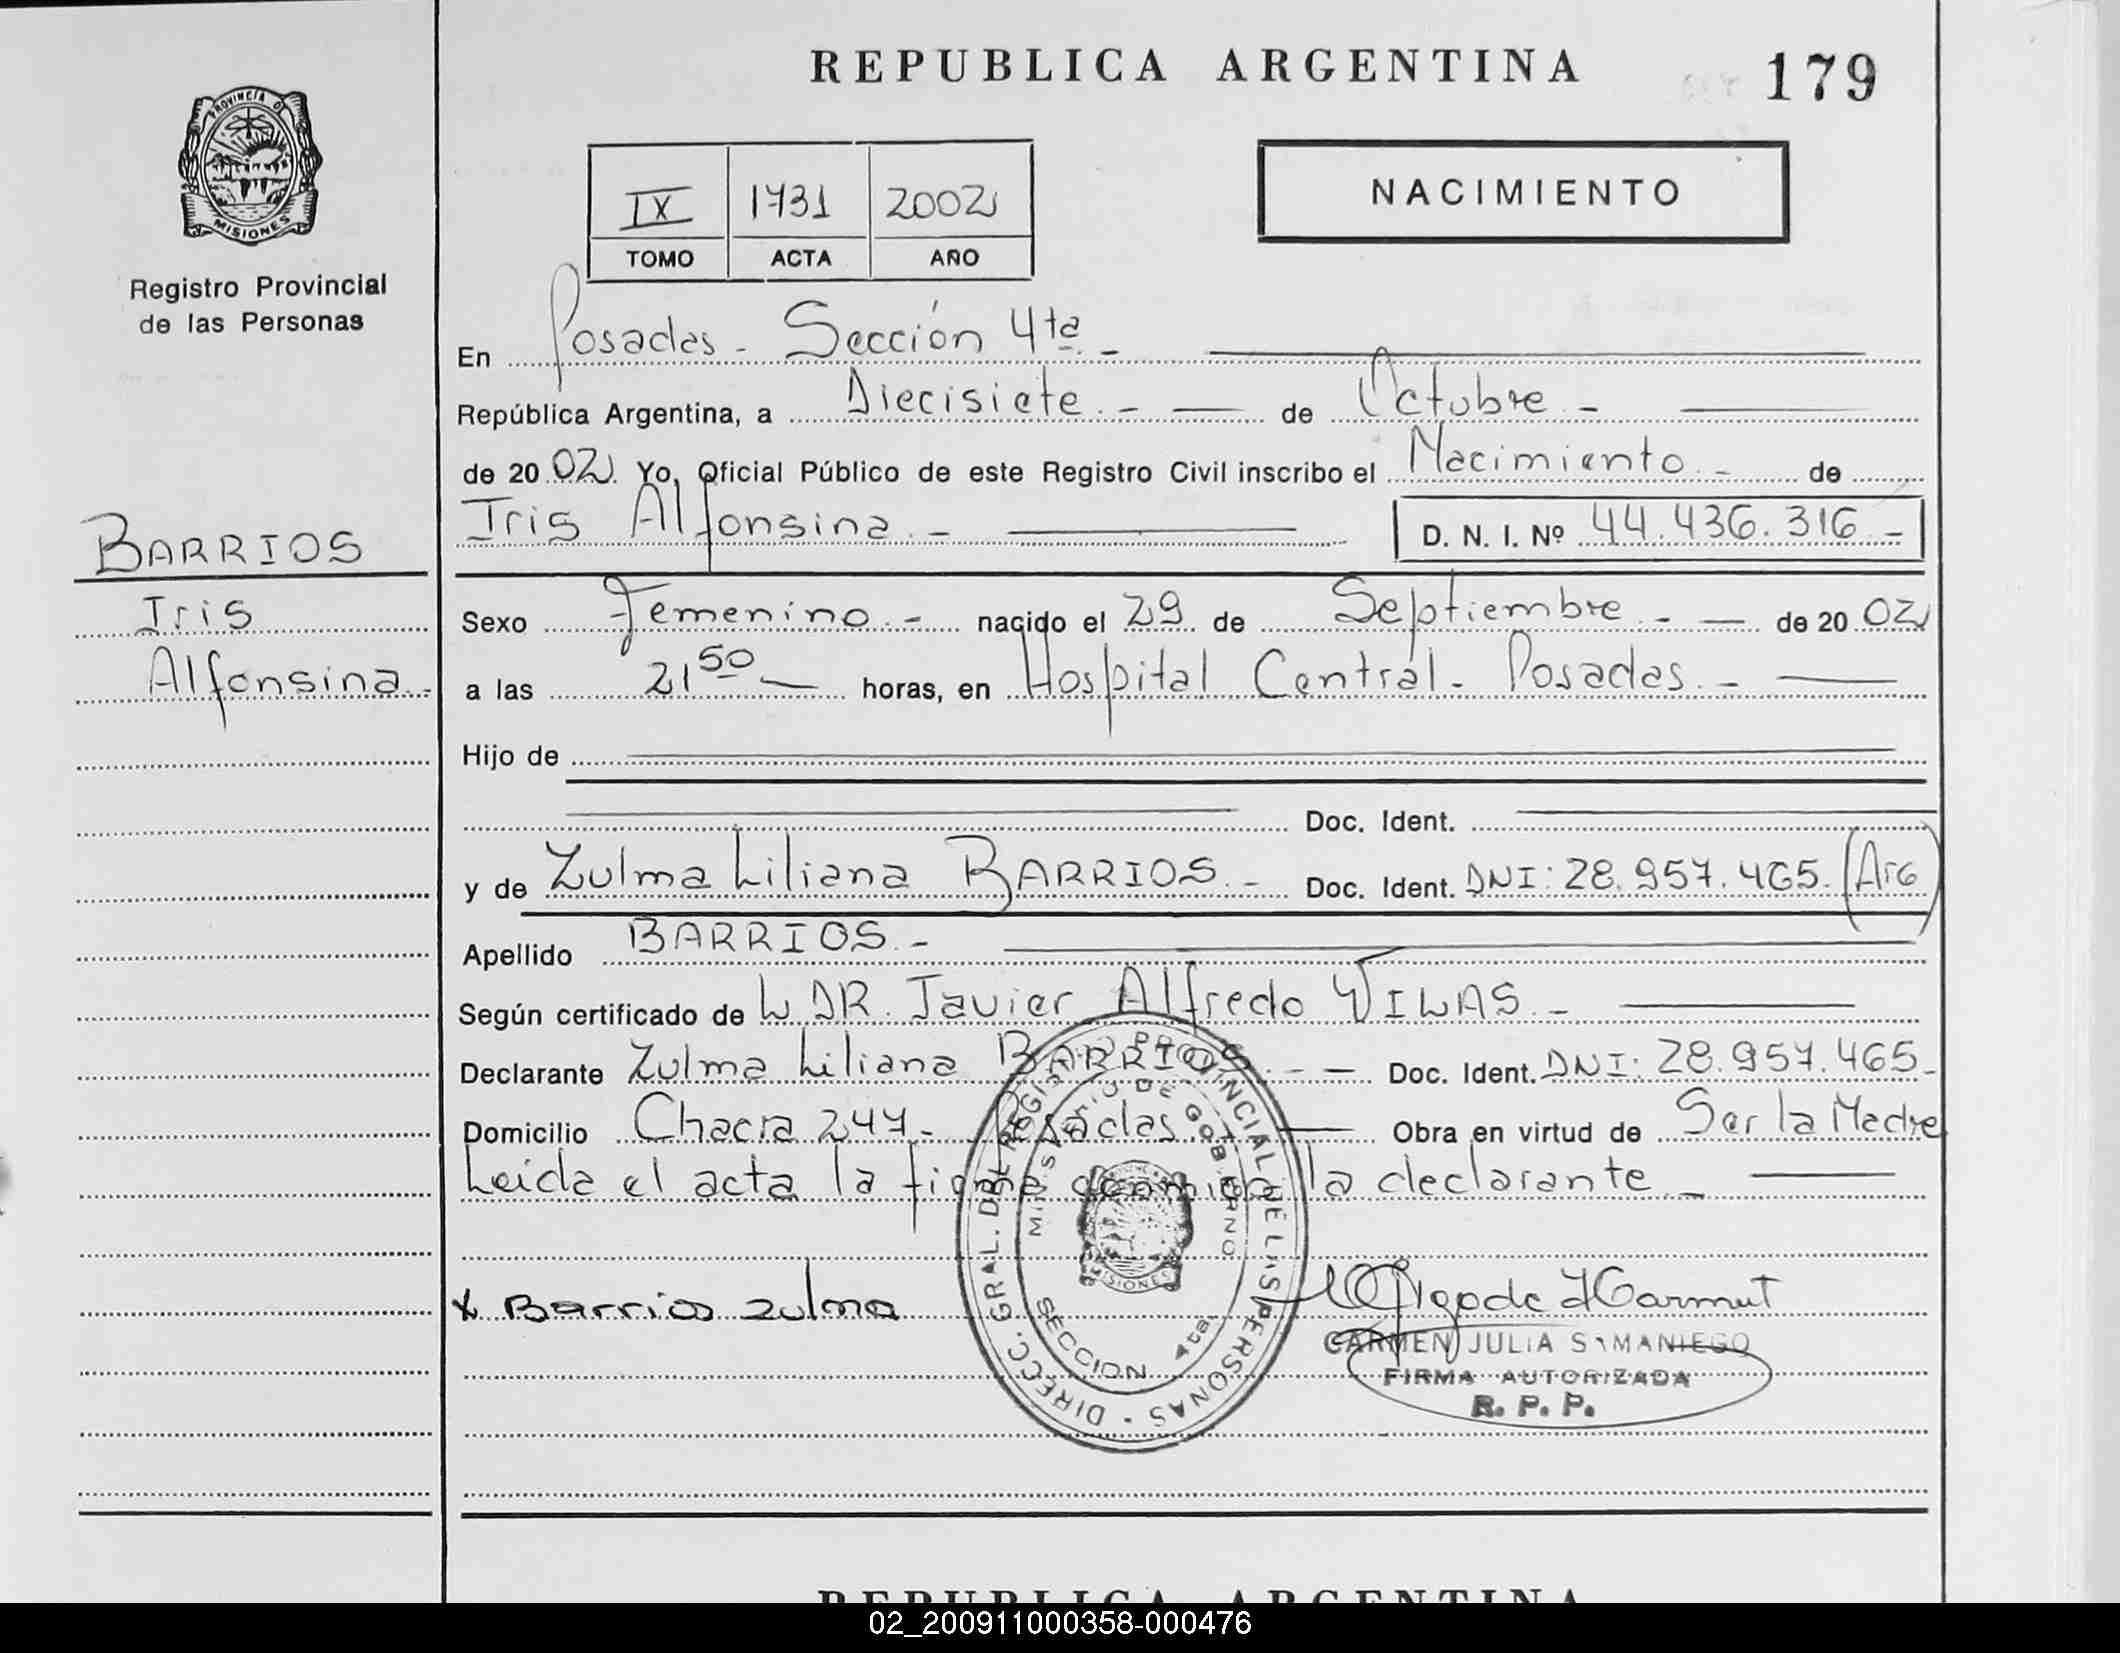 REPUBLICA ARGENTINA
179
PROVINCIA D
MISIONES
Registro Provincial
de las Personas
IX 1731 2002
TOMO ACTA AÑO
NACIMIENTO
En Posadas - Sección 4ta. -
República Argentina, a Diecisiete. - de Octubre. -
de 20 02. Yo, Oficial Público de este Registro Civil inscribo el Nacimiento. - de
Iris Alfonsina. - D. N. I. Nº 44.436.316 -
BARRIOS
Iris
Alfonsina. -
Sexo Femenino. - nacido el 29 de Septiembre. - de 20 02
a las 21 50 horas, en Hospital Central - Posadas. -
Hijo de
Doc. Ident.
y de Zulma Liliana BARRIOS. - Doc. Ident. DNI: 28.957.465. (Arg
Apellido BARRIOS. -
Según certificado de DR. Javier Alfredo VILAS. -
Declarante Zulma Liliana BARRIOS. - Doc. Ident. DNI: 28.957.465 -
Domicilio Chacra 247 - Posadas Obra en virtud de Ser la Madre
Leida el acta la firma conmigo la declarante. -
x Barrios zulma
DIRECC. GRAL. DEL REGISTRO PROVINCIAL DE LAS PERSONAS
MINISTERIO DE GOBIERNO
MISIONES
SECCION 4ta.
CARMEN JULIA SAMANIEGO
FIRMA AUTORIZADA
R. P. P.
REPUBLICA ARGENTINA
02_200911000358-000476